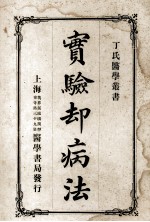 丁氏醫學叢書
實驗却病法
上海
醫學書局發行